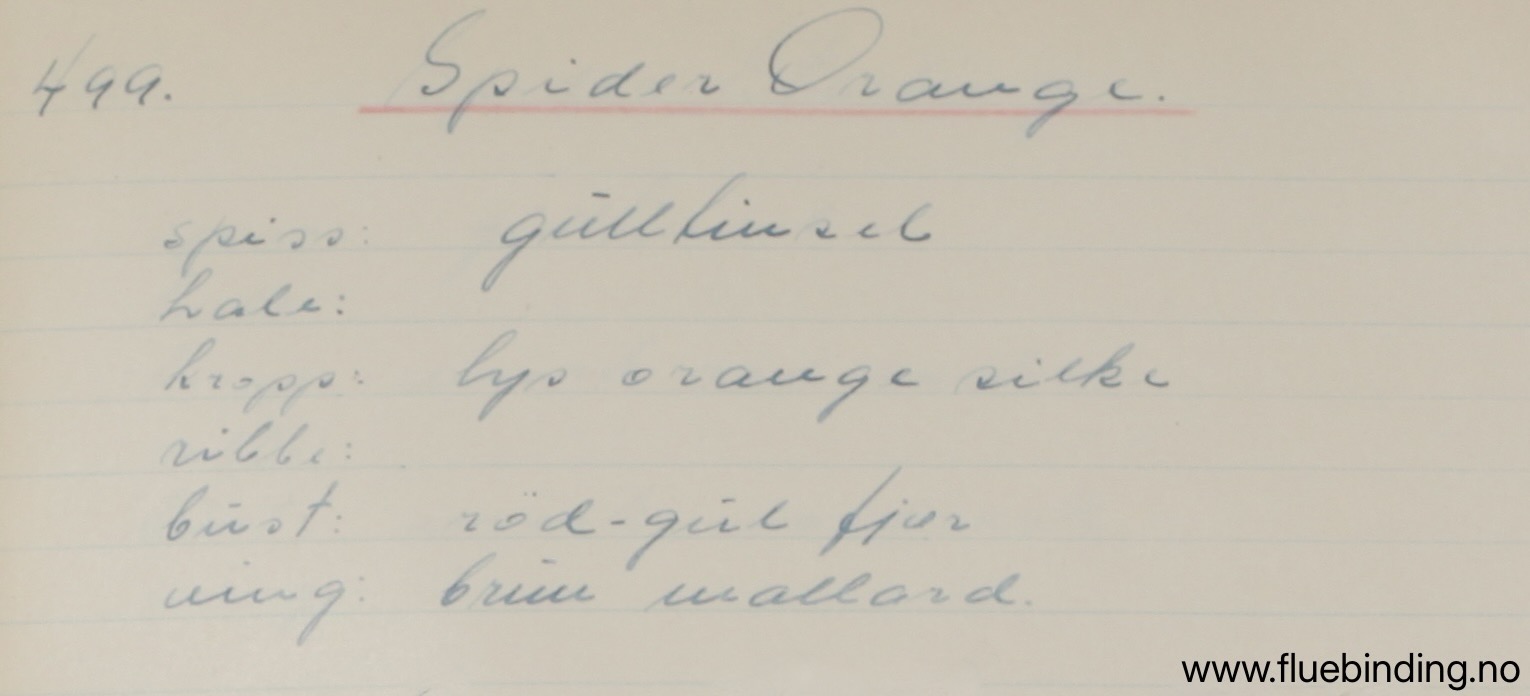 499. Spider Orange.
spiss: gulltinsel
hale:
kropp: lys orange silke
ribbe:
bust: röd-gul fjær
ving: brun mallard.
www.fluebinding.no